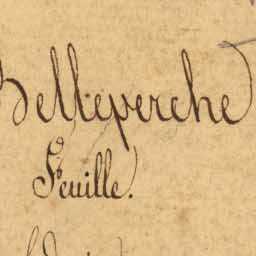 Belleperche
Feuille.